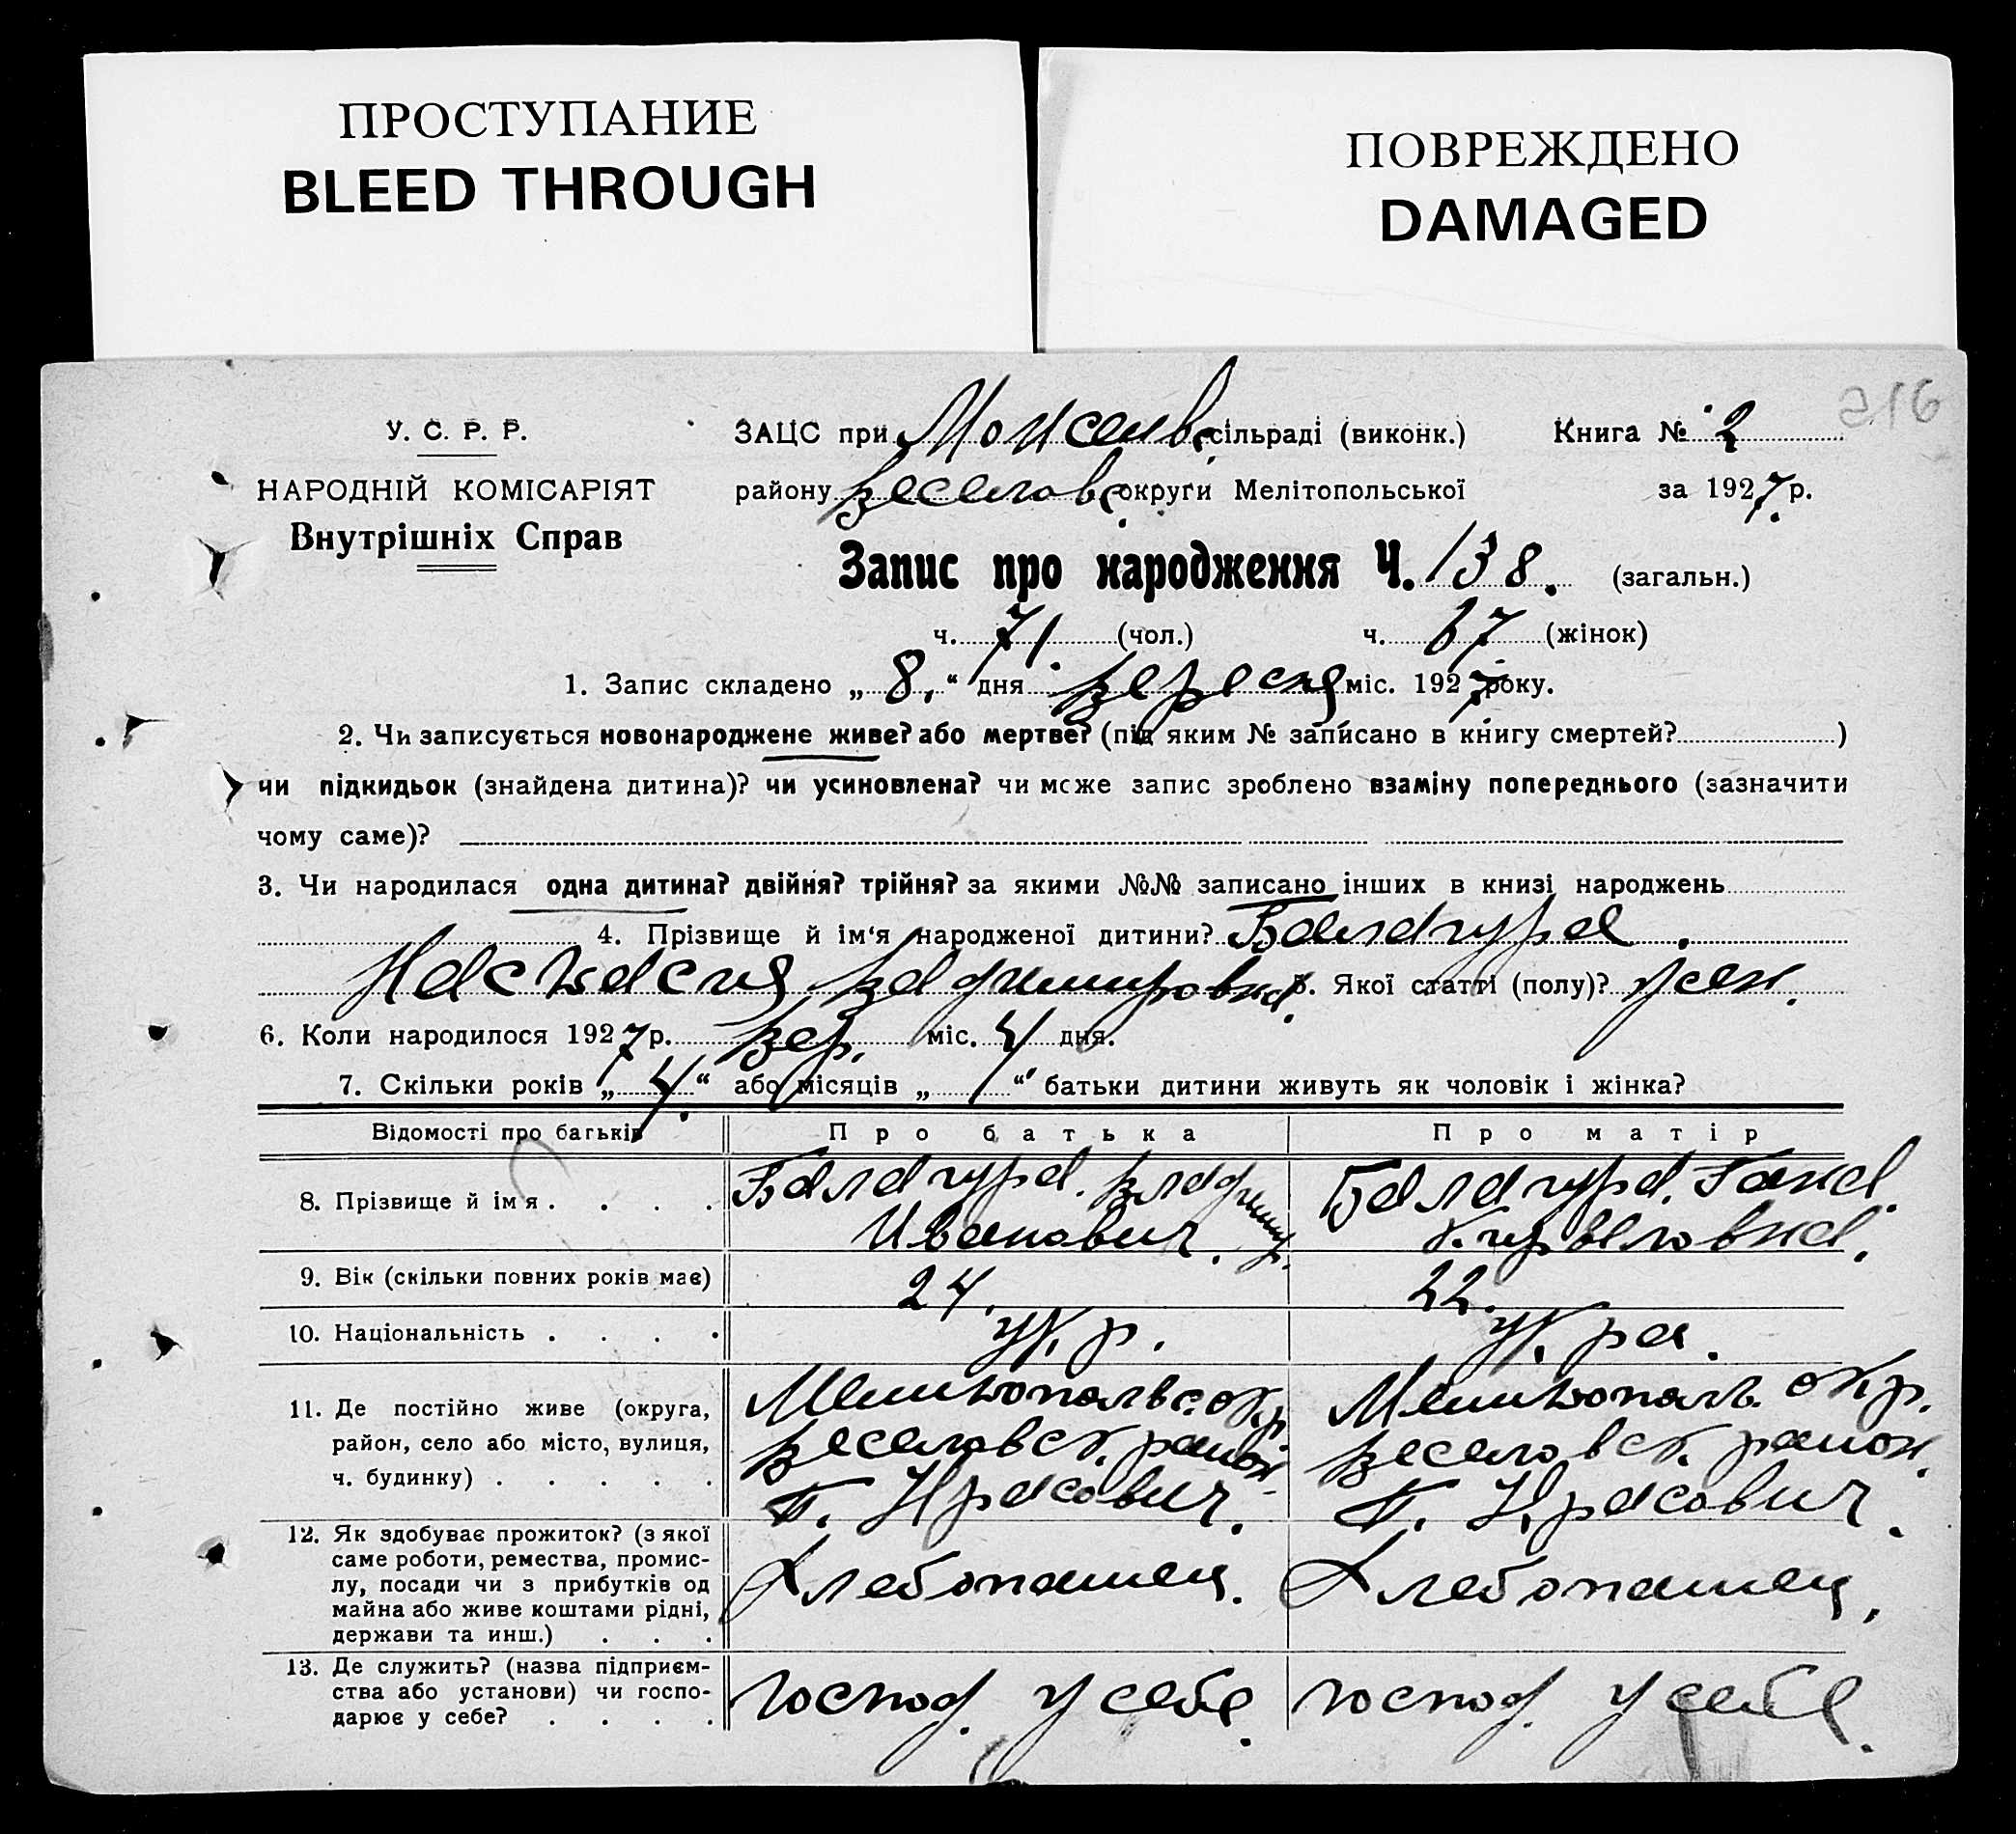 ПРОСТУПАНИЕ
BLEED THROUGH
ПОВРЕЖДЕНО
DAMAGED
316
У. С. Р. Р.
НАРОДНІЙ КОМІСАРІЯТ
Внутрішніх Справ
ЗАЦС при сільраді (виконк.) Книга № 2
району Веселовс. округи Мелітопольської за 1927 р.
Запис про народження Ч. 138. (загальн.)
ч. 71. (чол.) ч. 67 (жінок)
1. Запис складено „ 8. “ дня вересня міс. 1927 року.
2. Чи записується новонароджене живе? або мертве? (під яким № записано в книгу смертей? )
чи підкидьок (знайдена дитина)? чи усиновлена? чи може запис зроблено взаміну попереднього (зазначити
чому саме)?
3. Чи народилася одна дитина? двійня? трійня? за якими №№ записано інших в книзі народжень
4. Прізвище й ім‘я народженої дитини? Балагура.
Настасия 5. Якої статті (полу)? жен.
6. Коли народилося 1927 р. вер. міс. 4 дня.
7. Скільки років „ 4. “ або місяців „ “ батьки дитини живуть як чоловік і жінка?
Відомості про батьків Про батька Про матір
8. Прізвище й ім'я . . . . Балагура. Владимир. Иванович. Балагура. Ганна. Кирилловна.
9. Вік (скільки повних років має) 24. 22.
10. Національність . . . . укр. укра.
11. Де постійно живе (округа, район, село або місто, вулиця, ч. будинку) . . . . . Мелитопольс. окр. Веселовск. район. п. Красович. Мелитополь. окр. Веселовск. район. п. Красович.
12. Як здобуває прожиток? (з якої саме роботи, ремества, промислу, посади чи з прибутків од майна або живе коштами рідні, держави та инш.) . . . Хлебопашец. Хлебопашец.
13. Де служить? (назва підприємства або установи) чи господарює у себе? . . . . господ. у себе. господ. у себе.